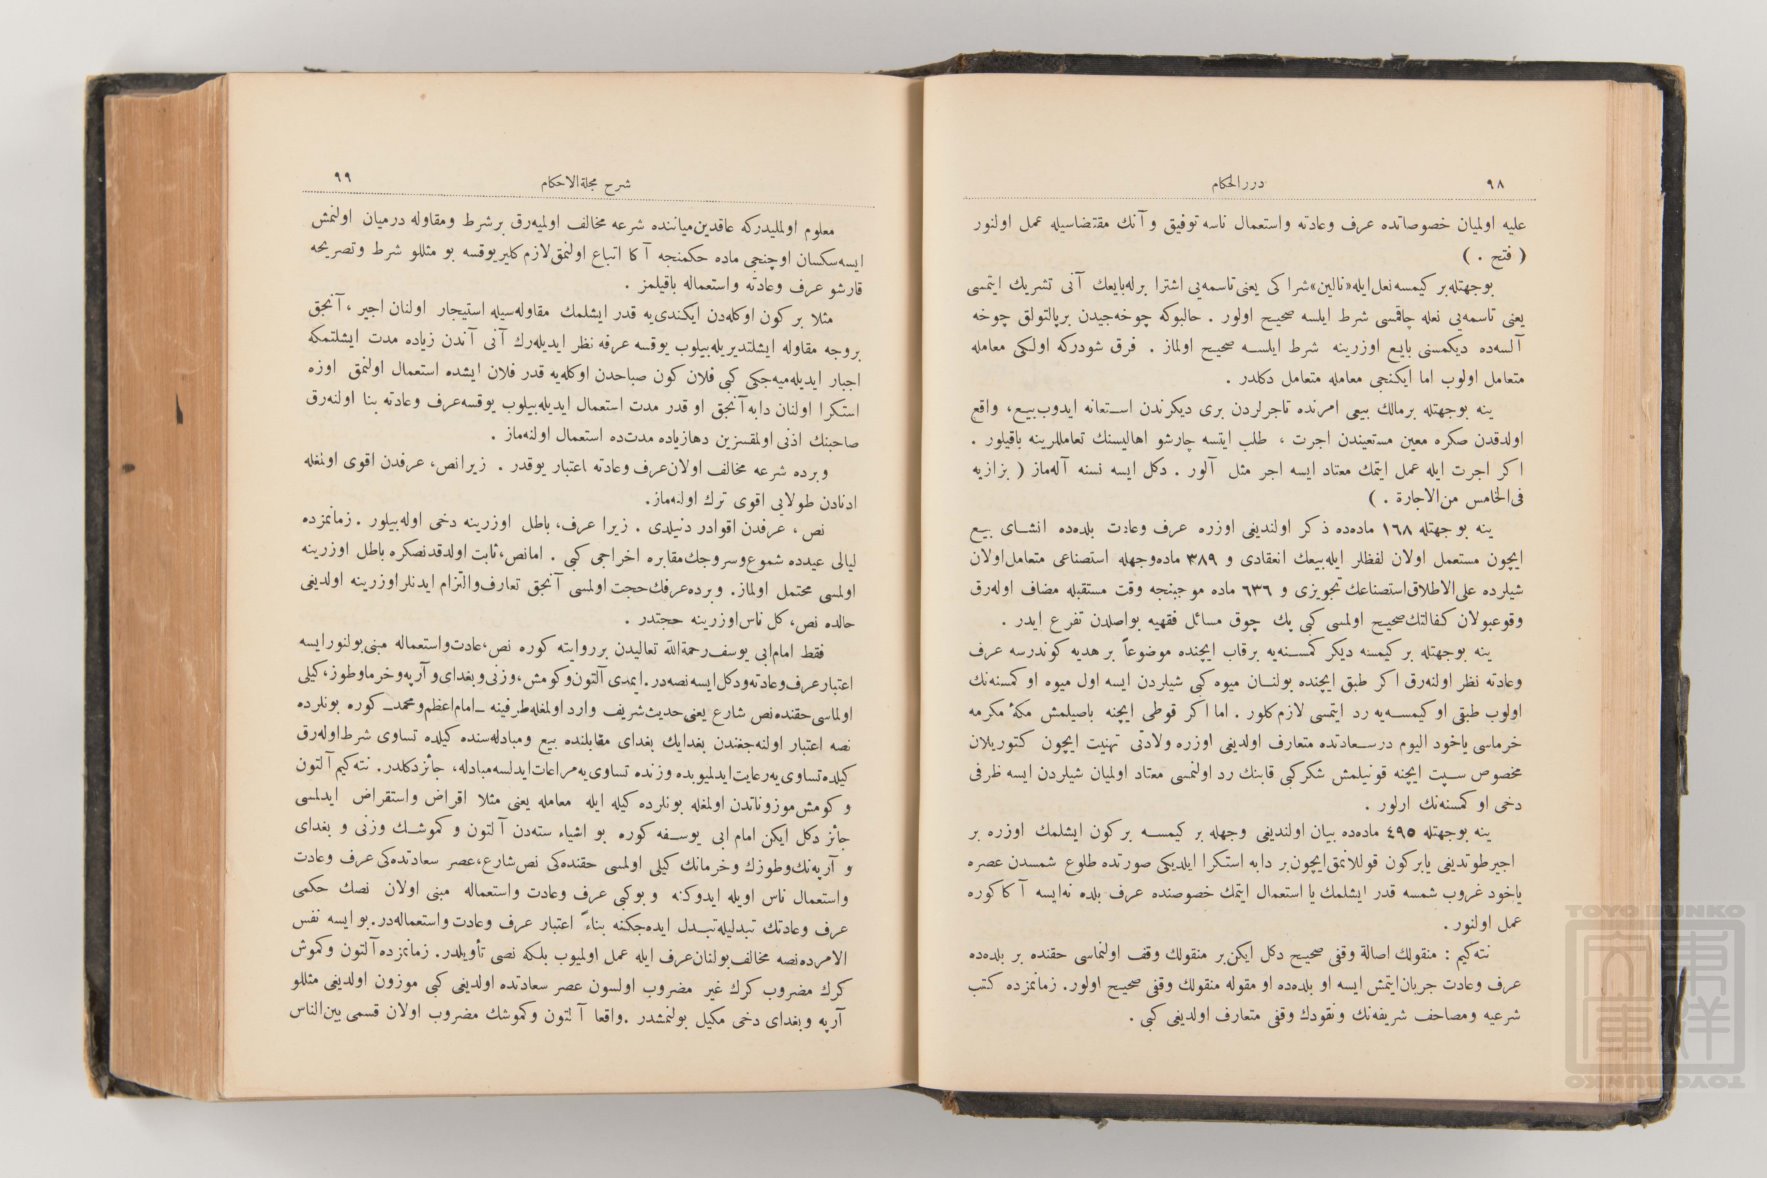 ٩٨
دررالحكام
عليه اولميان خصوصاتده عرف وعادته واستعمال ناسه توفيق و آنك مقتضاسيله عمل اولنور
( فتح . )
بوجهتله بر كيمسه نعل ايله «نالين» شراكى يعنى تاسمه‌يى اشترا برله بايعك آنى تشريك ايتمسى
يعنى تاسمه‌يى نعله چاقمسى شرط ايلسه صحيح اولور . حالبوكه چوخه‌جيدن برپالتولق چوخه
آلسه‌ده ديكمسنى بايع اوزرينه شرط ايلسه صحيح اولماز . فرق شودركه اولكى معامله
متعامل اولوب اما ايكنجى معامله متعامل دكلدر .
ينه بوجهتله برمالك بيعى امرنده تاجرلردن برى ديكرندن استعانه ايدوب بيع ، واقع
اولدقدن صكره معين مستعيندن اجرت ، طلب ايتسه چارشو اهاليسنك تعامللرينه باقيلور .
اكر اجرت ايله عمل ايتمك معتاد ايسه اجر مثل آلور . دكل ايسه نسنه آله‌ماز ( بزازيه
فى الخامس من الاجارة . )
ينه بوجهتله ١٦٨ ماده‌ده ذكر اولنديغى اوزره عرف وعادت بلده‌ده انشاى بيع
ايچون مستعمل اولان لفظلر ايله بيعك انعقادى و ٣٨٩ ماده‌وجهله استصناعى متعامل اولان
شيلرده على الاطلاق استصناعك تجويزى و ٦٣٦ ماده موجبنجه وقت مستقبله مضاف اوله‌رق
وقوعبولان كفالتك صحيح اولمسى كبى پك چوق مسائل فقهيه بواصلدن تفرع ايدر .
ينه بوجهتله بر كيمسه ديكر كمسنه‌يه برقاب ايچنده موضوعاً بر هديه كوندرسه عرف
وعادته نظر اولنه‌رق اكر طبق ايچنده بولنان ميوه كبى شيلردن ايسه اول ميوه او كمسنه‌نك
اولوب طبقى او كيمسه‌يه رد ايتمسى لازم كلور . اما اكر قوطى ايچنه باصيلمش مكۀ مكرمه
خرماسى ياخود اليوم درسعادتده متعارف اولديغى اوزره ولادتى تهنيت ايچون كتوريلان
مخصوص سپت ايچنه قونيلمش شكر كبى قابنك رد اولنمسى معتاد اولميان شيلردن ايسه ظرفى
دخى او كمسنه‌نك ارلور .
ينه بوجهتله ٤٩٥ ماده‌ده بيان اولنديغى وجهله بر كيمسه بر كون ايشلمك اوزره بر
اجير طوتديغى يا بر كون قوللانمق ايچون بر دابه استكرا ايلديكى صورتده طلوع شمسدن عصره
ياخود غروب شمسه قدر ايشلمك يا استعمال ايتمك خصوصنده عرف بلده نه‌ايسه آكا كوره
عمل اولنور .
نته كيم : منقولك اصالة وقفى صحيح دكل ايكن بر منقولك وقف اولنماسى حقنده بر بلده‌ده
عرف وعادت جريان ايتمش ايسه او بلده‌ده او مقوله منقولك وقفى صحيح اولور . زمانمزده كتب
شرعيه ومصاحف شريفه‌نك ونقودك وقفى متعارف اولديغى كبى .
شرح مجلة الاحكام
٩٩
معلوم اولمليدركه عاقدين ميانّنده شرعه مخالف اولميه‌رق برشرط ومقاوله درميان اولنمش
ايسه سكسان اوچنجى ماده حكمنجه آكا اتباع اولنمق لازم كلير يوقسه بو مثللو شرط وتصريحه
قارشو عرف وعادته واستعماله باقيلمز .
مثلا بر كون اوكله‌دن ايكندى‌يه قدر ايشلمك مقاوله‌سيله استيجار اولنان اجير ، آنجق
بروجه مقاوله ايشلتديريله‌بيلوب يوقسه عرفه نظر ايديله‌رك آنى آندن زياده مدت ايشلتمكه
اجبار ايديله‌ميه‌جكى كبى فلان كون صباحدن اوكله‌يه قدر فلان ايشده استعمال اولنمق اوزه
استكرا اولنان دابه آنجق او قدر مدت استعمال ايديله‌بيلوب يوقسه عرف وعادته بنا اولنه‌رق
صاحبنك اذنى اولمقسزين دهازياده مدت‌ده استعمال اولنه‌ماز .
وبرده شرعه مخالف اولان عرف وعادته اعتبار يوقدر . زيرا نص ، عرفدن اقوى اولمغله
ادنادن طولايى اقوى ترك اولنه‌ماز .
نص ، عرفدن اقوادر دنيلدى . زيرا عرف ، باطل اوزرينه دخى اوله‌بيلور . زمانمزده
ليالى عيدده شموع وسروجك مقابره اخراجى كبى . اما نص ، ثابت اولدقدنصكره باطل اوزرينه
اولمسى محتمل اولماز . وبرده عرفك حجت اولمسى آنجق تعارف والتزام ايدنلر اوزرينه اولديغى
حالده نص ، كل ناس اوزرينه حجتدر .
فقط امام ابى يوسف رحمة الله تعاليدن برروايته كوره نص ، عادت واستعماله مبنى بولنور ايسه
اعتبار عرف وعادته ودكل ايسه نصه‌در . ايمدى آلتون وكومش ، وزنى وبغداى و آرپه وخرما وطوز ، كيلى
اولماسى حقنده نص شارع يعنى حديث شريف وارد اولمغله طرفينه ــ امام اعظم ومحمد ــ كوره بونلرده
نصه اعتبار اولنه‌جغندن بغدايك بغداى مقابلنده بيع ومبادله‌سنده كيلده تساوى شرط اوله‌رق
كيلده تساوى‌يه رعايت ايدلميوبده وزنده تساوى‌يه مراعات ايدلسه مبادله ، جائز دكلدر . نته كيم آلتون
و كومش موزوناتدن اولمغله بونلرده كيله ايله معامله يعنى مثلا اقراض واستقراض ايدلمسى
جائز دكل ايكن امام ابى يوسفه كوره بو اشياء سته‌دن آلتون وكموشك وزنى و بغداى
و آرپه‌نك وطوزك وخرمانك كيلى اولمسى حقنده‌كى نص شارع ، عصر سعادتده‌كى عرف وعادت
واستعمال ناس اويله ايدوكنه وبوكبى عرف وعادت واستعماله مبنى اولان نصك حكمى
عرف وعادتك تبدليله تبدل ايده‌جكنه بناءً اعتبار عرف وعادت واستعماله‌در . بو ايسه نفس
الامرده نصه مخالف بولنان عرف ايله عمل اولميوب بلكه نصى تأويلدر . زمانمزده آلتون وكموش
كرك مضروب كرك غير مضروب اولسون عصر سعادتده اولديغى كبى موزون اولديغى مثللو
آرپه وبغداى دخى مكيل بولنمشدر . واقعا آلتون وكموشك مضروب اولان قسمى بين الناس
TOYO BUNKO
東洋文庫
TOYO BUNKO